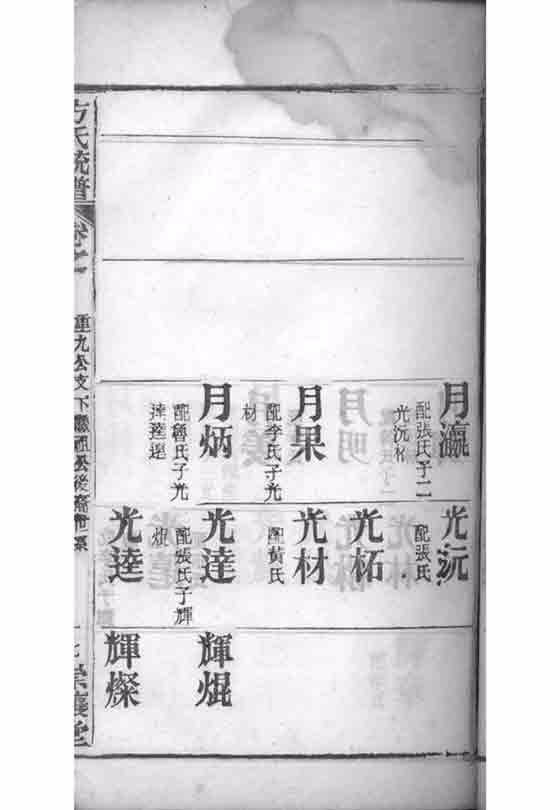 月瀛
配張氏子二
光沅柘
月果
配李氏子光
材
月炳
配魯氏子光
達逵
光沅
配張氏
光柘
光材
配黃氏
光達
配張氏子輝
焜
光逵
輝焜
輝燦
方氏統譜
卷之
重九公支下
公後裔世系
崇讓堂